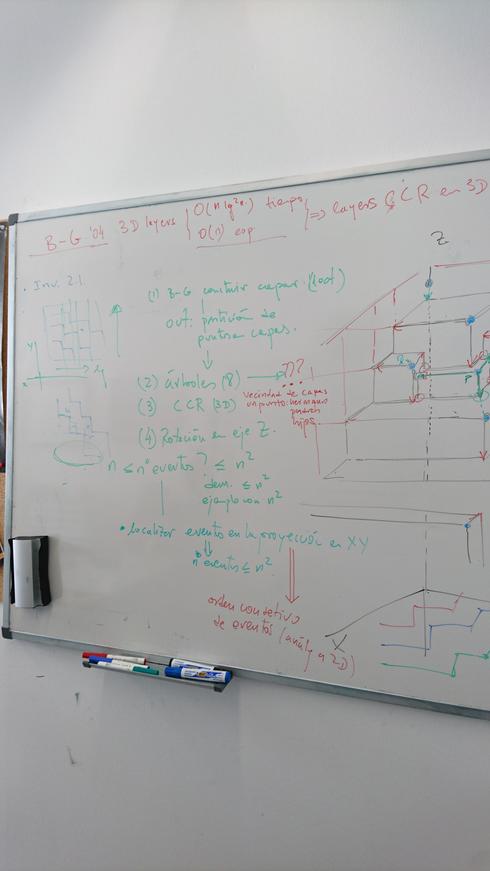 B-G '04 3D layers { O(n lg²n) tiempo
O(n) esp
=> layers CCR en 3D
Z
Inv. 2.1
(1) B-G construir capas. (1001)
out: partición de
puntos en capas.
(2) árboles (8) → ???
(3) CCR (3D)
vecindad de capas
un punto: hermanos
padres
hijos
(4) Rotación en eje Z.
n ≤ nº eventos? ≤ n²
dem. ≤ n²
ejemplo con n²
• Localizar eventos en la proyección en XY
nº eventos ≤ n²
orden consecutivo
de eventos (análogo a 2D)
X